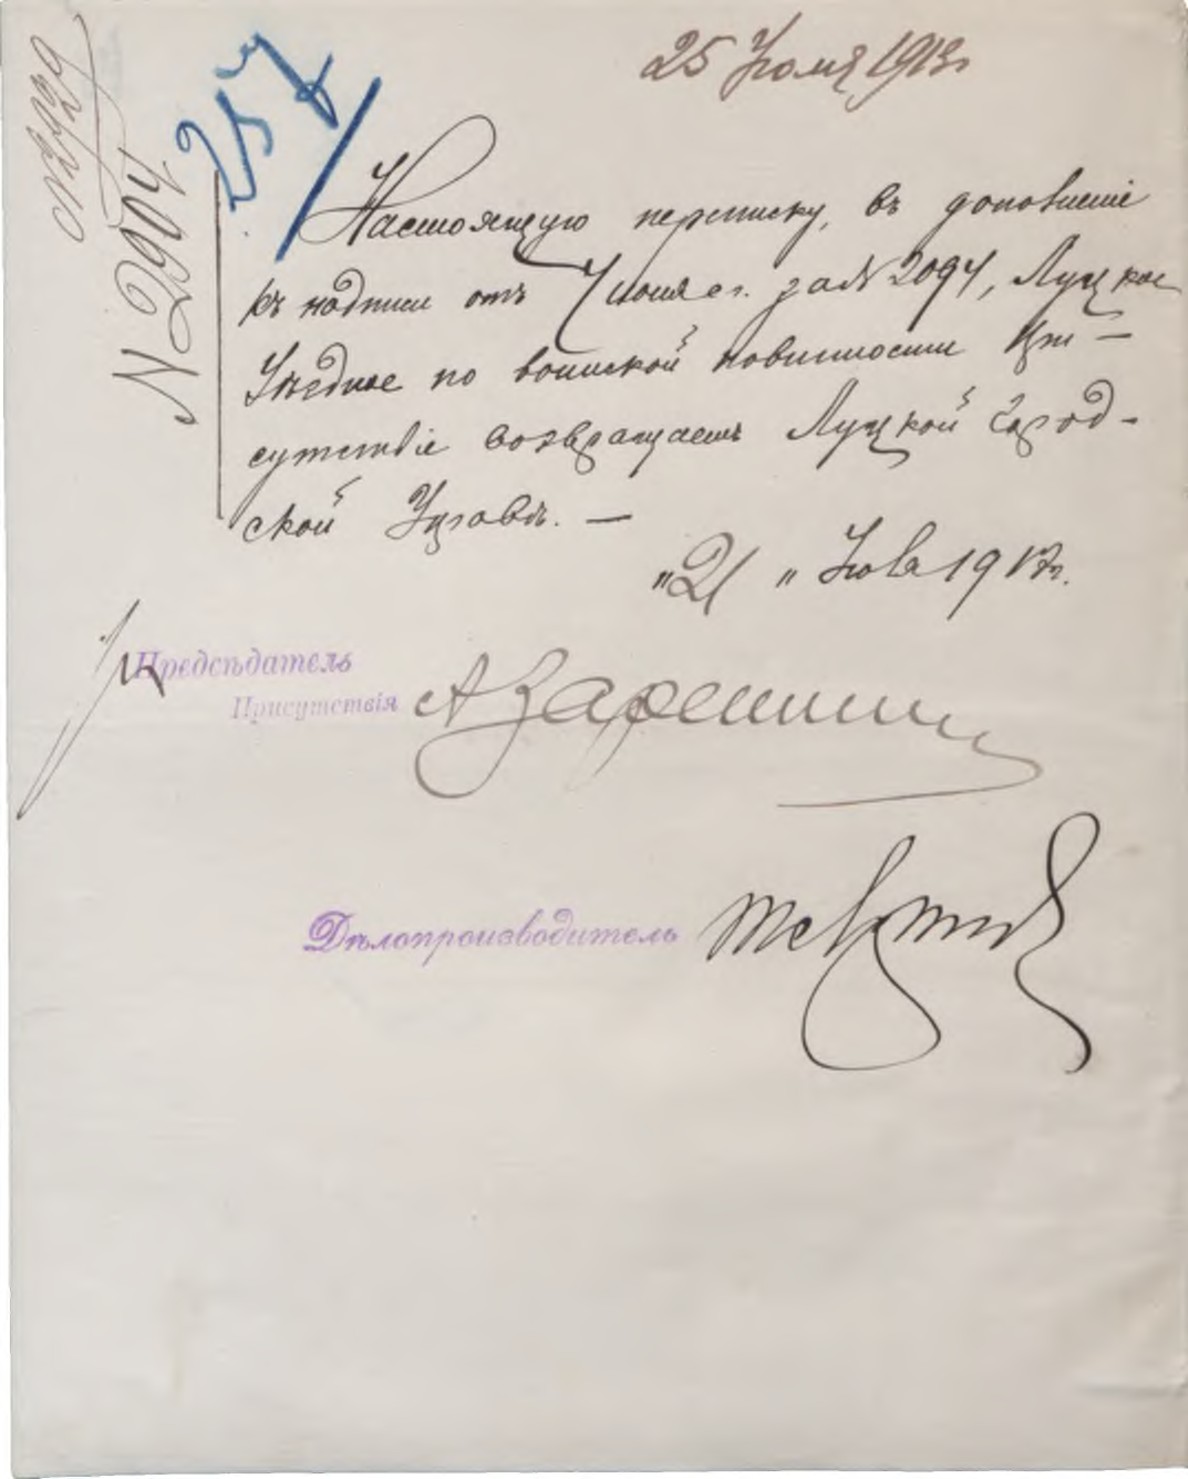 25 Июля 1913г
№2929
№2904
25/7
Настоящую переписку, въ дополненіе
къ надписи отъ 4 Июня с г. за № 2094, Луцкое
Уѣздное по воинской повинности При-
сутствіе возвращаетъ Луцкой Город-
ской Управѣ. —
"21" Июля 1913г.
Предсѣдатель
Присутствія
Дѣлопроизводитель